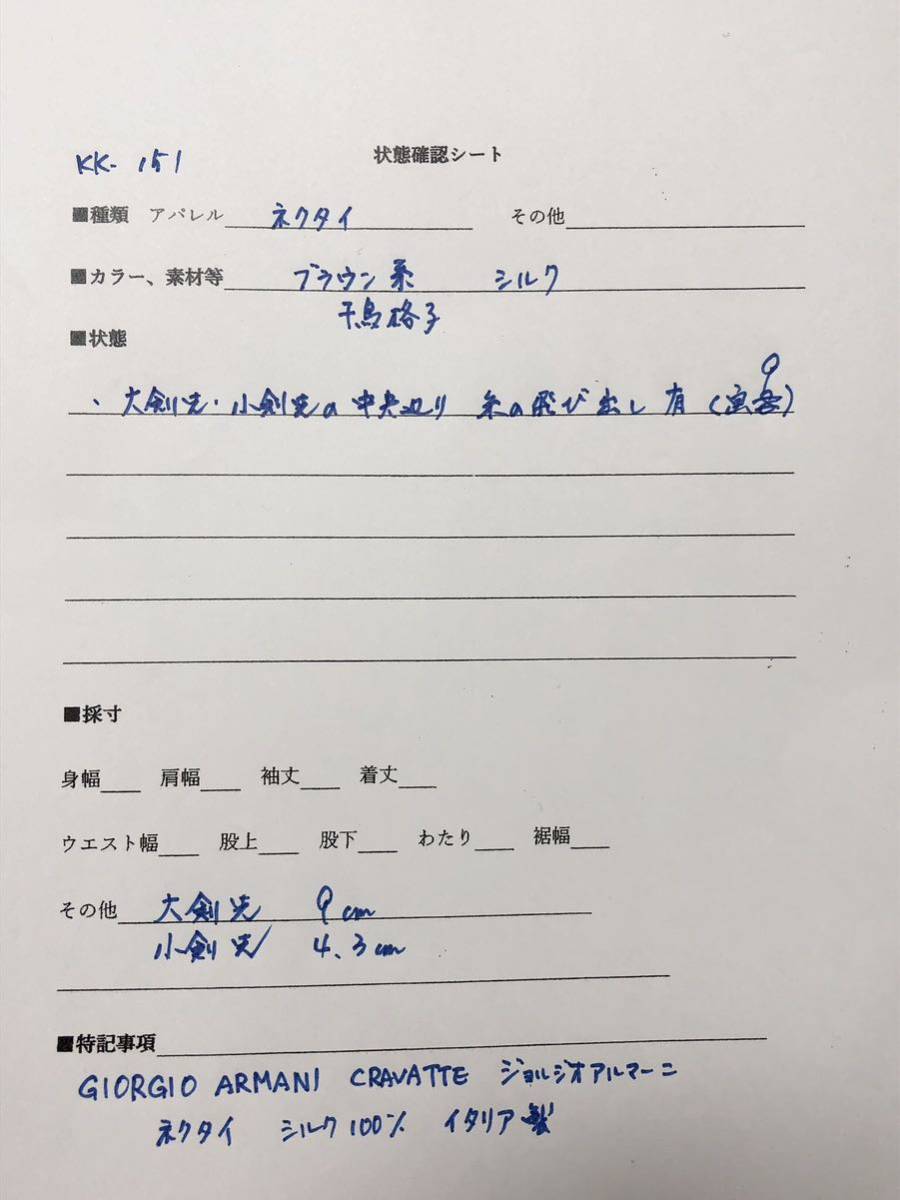 KK-151
状態確認シート
■種類 アパレル ネクタイ その他
■カラー、素材等 ブラウン系 シルク
千鳥格子
■状態
・大剣先・小剣先の中央辺り 糸の飛び出し 有
9
■採寸
身幅 肩幅 袖丈 着丈
ウエスト幅 股上 股下 わたり 裾幅
その他 大剣先 9cm
小剣先 4.3cm
■特記事項
GIORGIO ARMANI CRAVATTE ジョルジオアルマーニ
ネクタイ シルク100% イタリア製